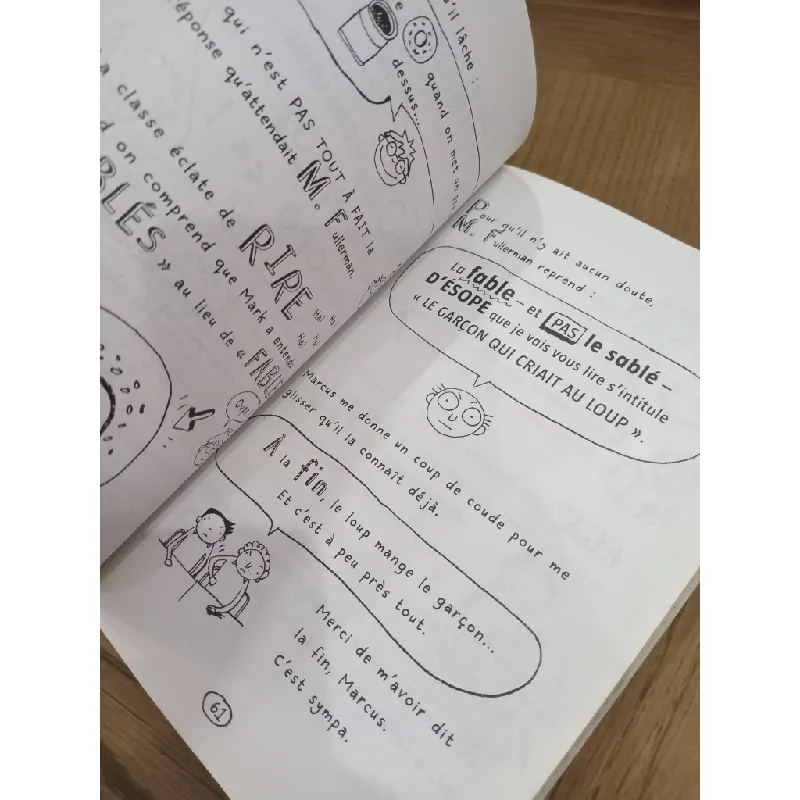 'il lâche :
e
quand on met un
dessus...
qui n'est PAS TOUT À FAIT la
réponse qu'attendait M. Fullerman.
a classe éclate de RIRE
Ha!
Ha!
Ha!
d on comprend que Mark a entendu
BLÉS » au lieu de « FABL
Pour qu'il n'y ait aucun doute,
M. Fullerman reprend :
La fable - et PAS le sablé -
D'ESOPE que je vais vous lire s'intitule
« LE GARÇON QUI CRIAIT AU LOUP ».
Marcus me donne un coup de coude pour me
glisser qu'il la connaît déjà.
À la fin, le loup mange le garçon...
Et c'est à peu près tout.
Merci de m'avoir dit
la fin, Marcus.
C'est sympa.
61